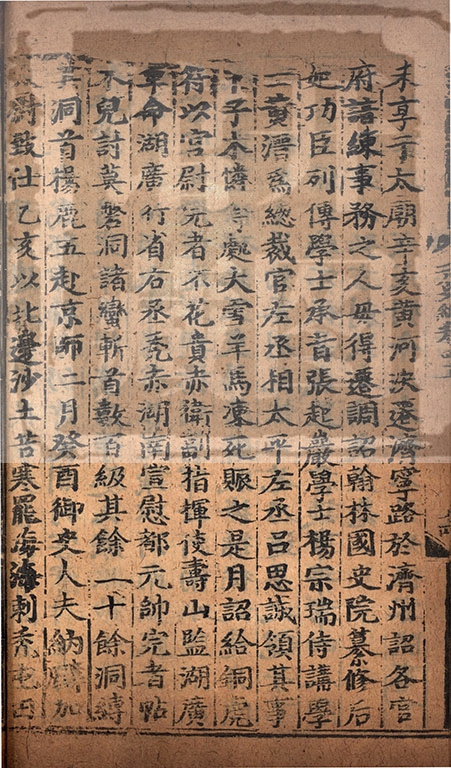 未享于太廟辛亥黄河决遷濟寧路於濟州詔各官
府諳練事務之人毋得遷調詔翰林國史院纂修后
妃功臣列傳學士承旨張起巖學士楊宗瑞侍講學
士黄溍爲總裁官左丞相太平左丞呂思誠領其事
大雪羊馬凍死賑之是月詔給銅虎
符以宮尉完者不花貴赤衛副指揮使壽山監湖廣
湖廣行省右丞禿赤湖南宣慰都元帥完者帖
木兒討莫磐洞諸蠻斬首數百級其餘二十餘洞縛
其洞首楊鹿五赴京師二月癸酉御史大夫納麟加
致仕乙亥以北邊沙土苦寒罷海海剌禿屯田